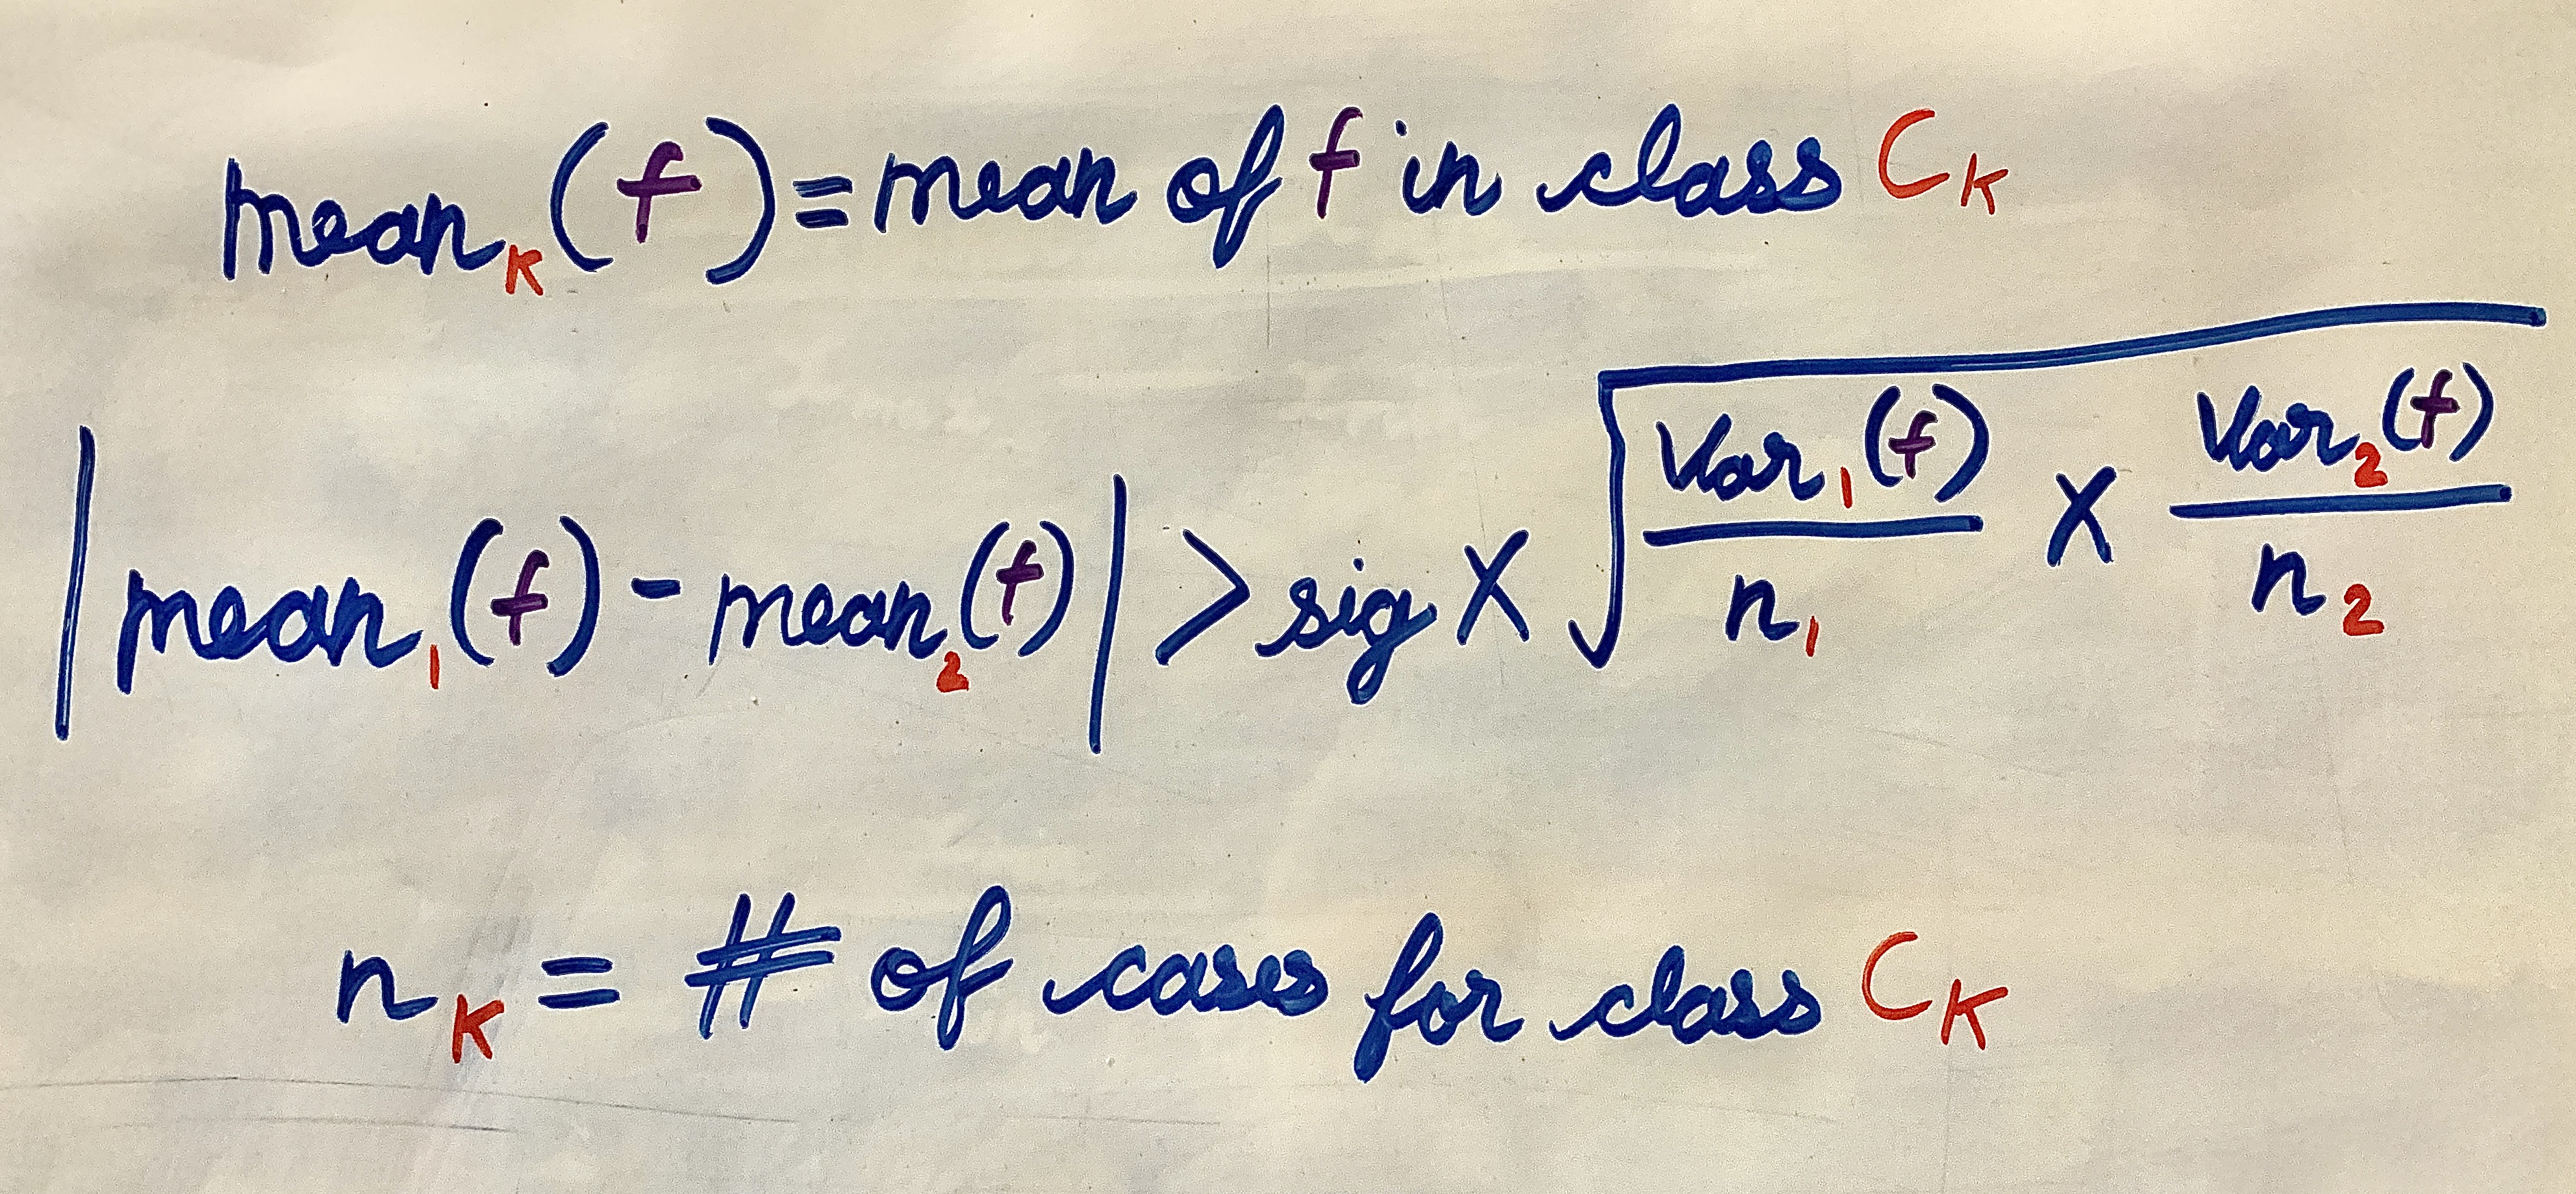 mean_K(f) = mean of f in class C_K
|mean_1(f) - mean_2(f)| > sig X √(Var_1(f)/n_1 X Var_2(f)/n_2)
n_K = # of cases for class C_K